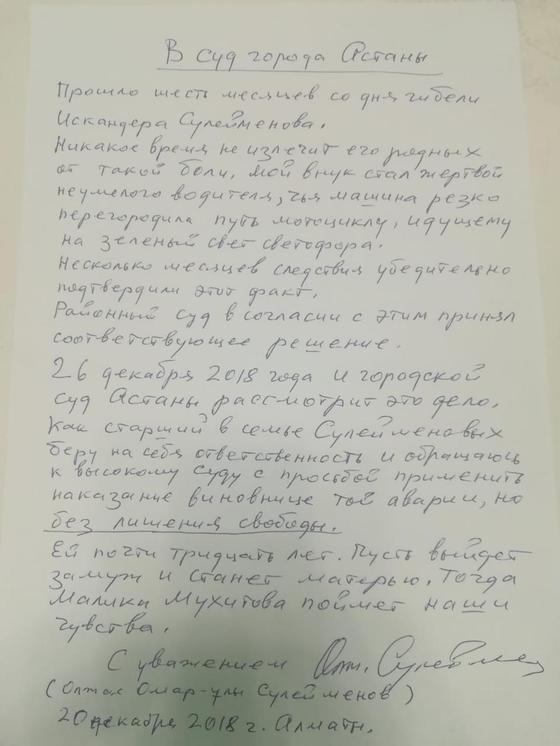 В суд города Астаны
Прошло шесть месяцев со дня гибели
Искандера Сулейменова.
Никакое время не излечит его родных
от такой боли, мой внук стал жертвой
неумелого водителя, чья машина резко
перегородила путь мотоциклу, идущему
на зеленый свет светофора.
Несколько месяцев следствия убедительно
подтвердили этот факт.
Районный суд в согласии с этим принял
соответствующее решение.
26 декабря 2018 года и городской
суд Астаны рассмотрит это дело.
Как старший в семье Сулейменовых
беру на себя ответственность и обращаюсь
к высокому суду с просьбой применить
наказание виновнице той аварии, но
без лишения свободы.
Ей почти тридцать лет. Пусть выйдет
замуж и станет матерью. Тогда
Малика Мухитова поймет наши
чувства.
С уважением Олж. Сулейменов
(Олжас Омар-улы Сулейменов)
20 декабря 2018 г. Алматы.